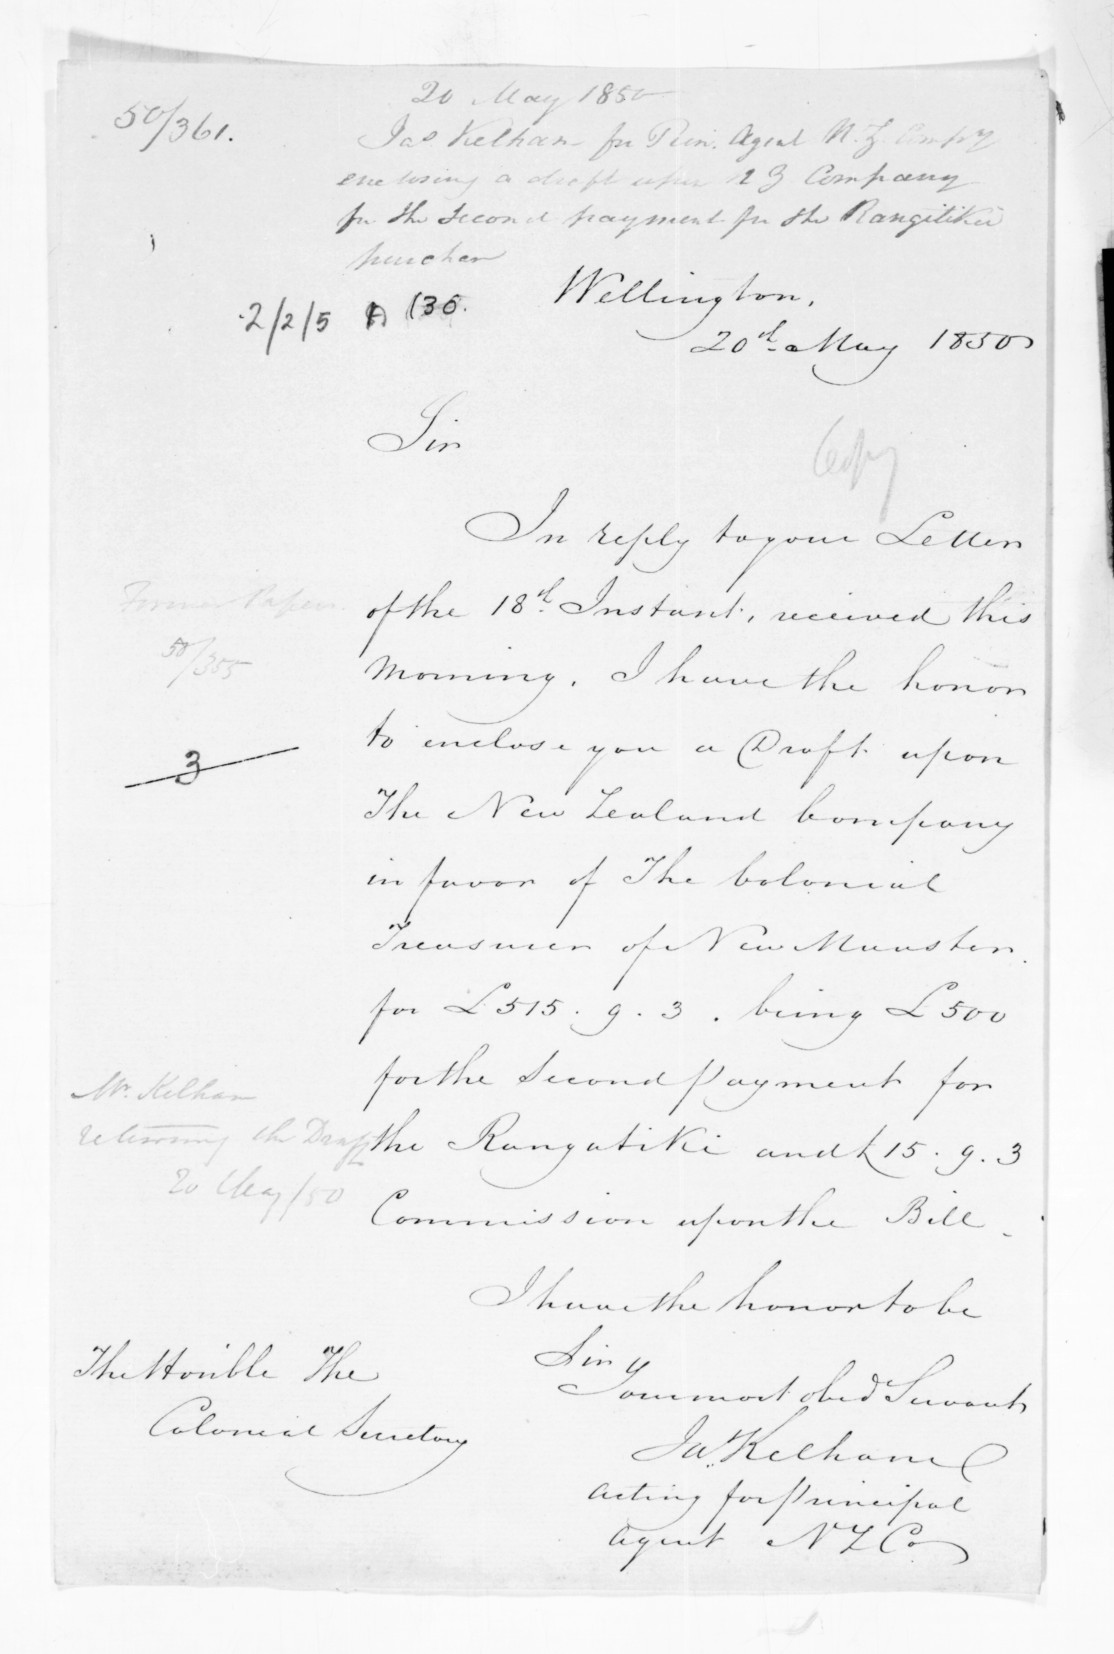 50/361.
20 May 1850
Jas Kelham for Prin. Agent N. Z. Compy
enclosing a draft upon N Z Company
for the second payment for the Rangitikei
purchase
2/2/5 A 136.
Wellington,
20th May 1850
Sir
Copy
In reply to your Letter
of the 18th Instant, received this
morning, I have the honor
to enclose you a Draft upon
The New Zealand Company
in favor of The Colonial
Treasurer of New Munster
for £515. 9. 3. being £500
for the Second payment for
the Rangatiki and £15. 9. 3
Commission upon the Bill.
Former Papers
50/355
3
Mr. Kelham
returning the Draft
20 May/50
I have the honor to be
Sir
Your most obed Servant
Jas Kelham
Acting for Principal
Agent N Z Co
The Honble The
Colonial Secretary